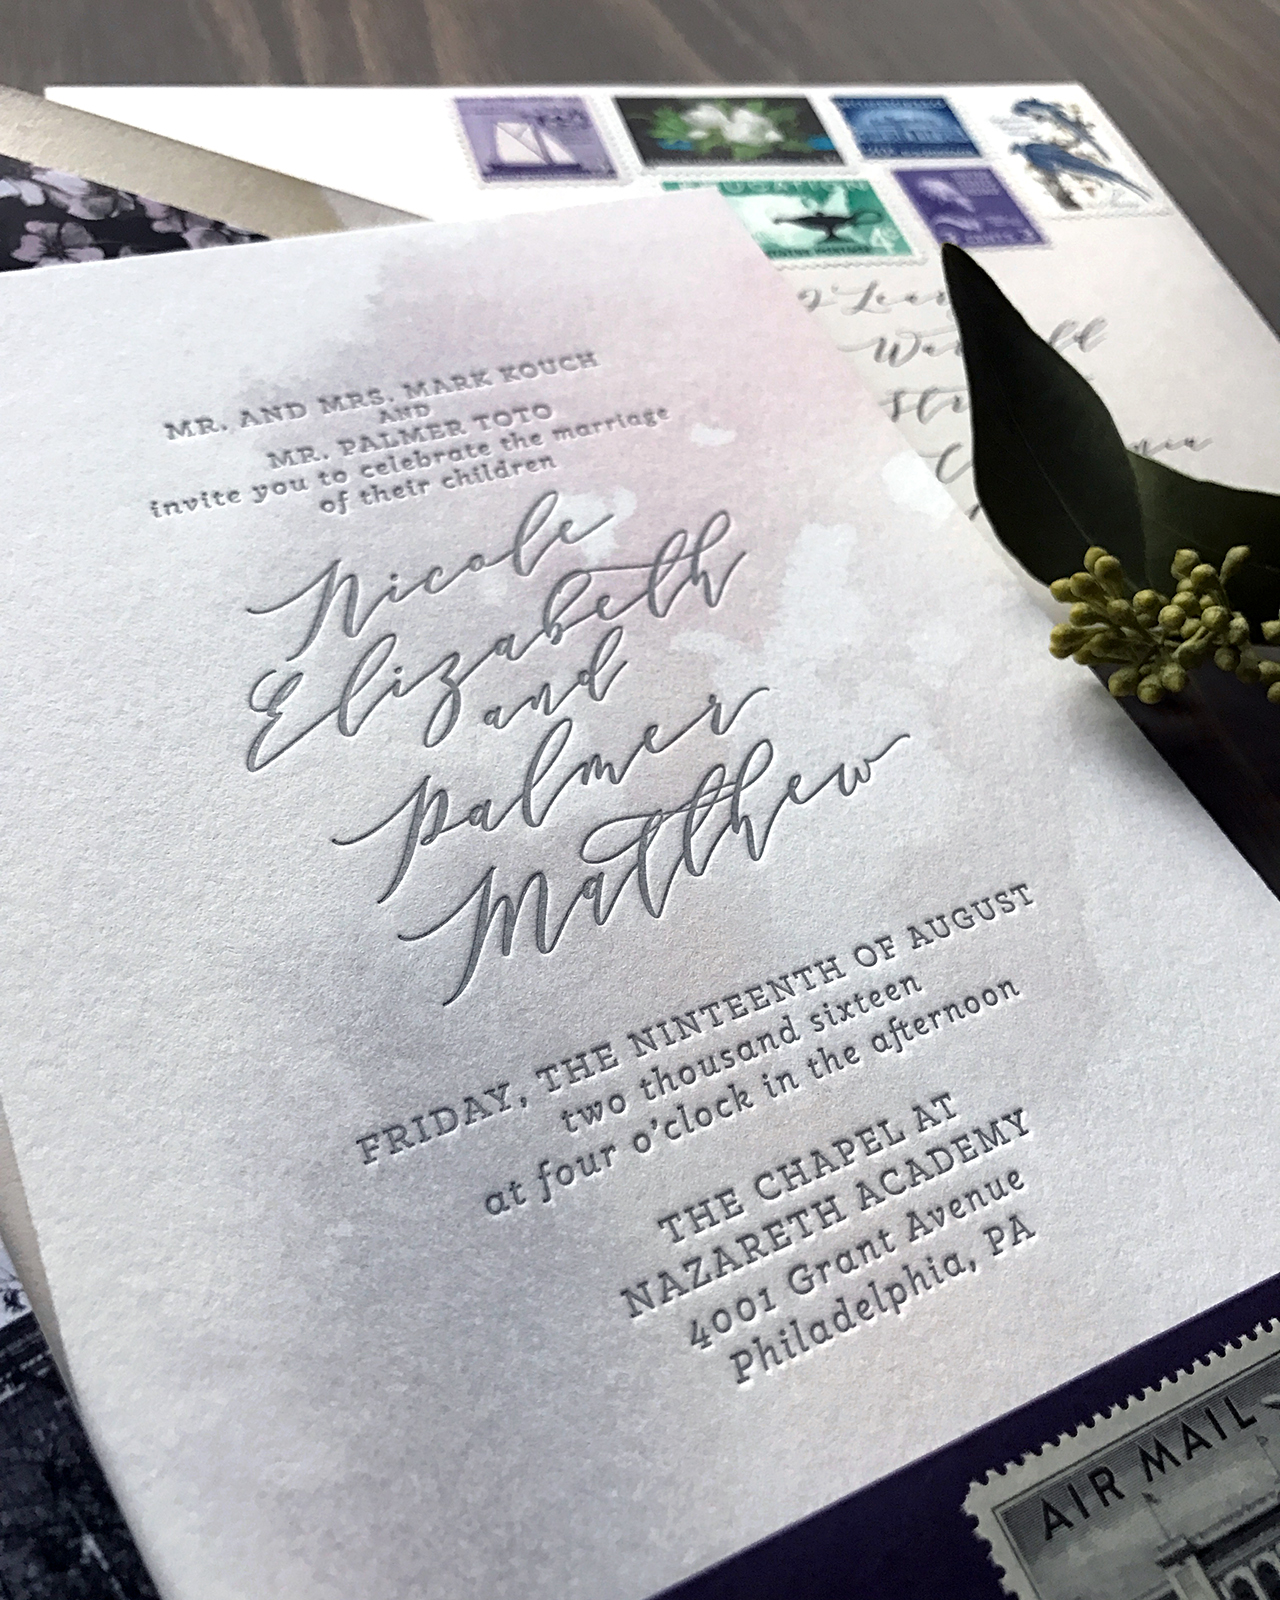 MR. AND MRS. MARK KOUCH
AND
MR. PALMER TOTO
invite you to celebrate the marriage
of their children
Nicole
Elizabeth
and
Palmer
Matthew
FRIDAY, THE NINTEENTH OF AUGUST
two thousand sixteen
at four o'clock in the afternoon
THE CHAPEL AT
NAZARETH ACADEMY
4001 Grant Avenue
Philadelphia, PA
AIR MAIL
4¢